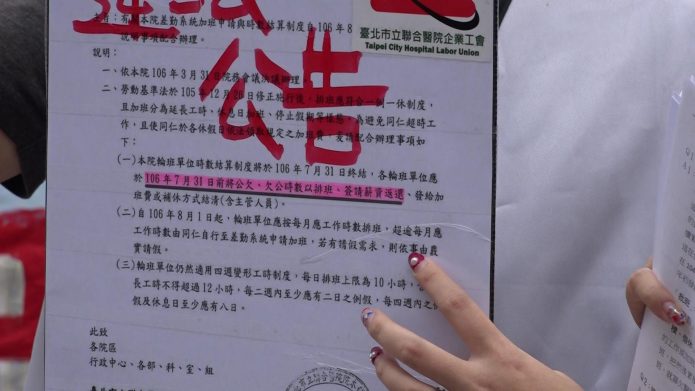 違法
公告
臺北市立聯合醫院企業工會
Taipei City Hospital Labor Union
主旨:有關本院差勤系統加班申請與時數結算制度自106年8
說明事項配合辦理。
說明:
一、依本院106年3月31日院務會議決議辦理。
二、勞動基準法於105年12月26日修正施行後,排班應符合一例一休制度,
且加班分為延長工時、休息日加班、停止假期等樣態,為避免同仁超時工
作,且使同仁於各休假日依法領取規定之加班費,爰請配合辦理事項如
下:
(一)本院輪班單位時數結算制度將於106年7月31日終結,各輪班單位應
於106年7月31日前將公欠、欠公時數以排班、簽請薪資返還、發給加
班費或補休方式結清(含主管人員)。
(二)自106年8月1起,輪班單位應按每月應工作時數排班,超逾每月應
工作時數由同仁自行至差勤系統申請加班,若有請假需求,則依事由覈
實請假。
(三)輪班單位仍然適用四週變形工時制度,每日排班上限為10小時,
長工時不得超過12小時,每二週內至少應有二日之例假,每四週內之例
假及休息日至少應有八日。
此致
各院區
行政中心、各部、科、室、組